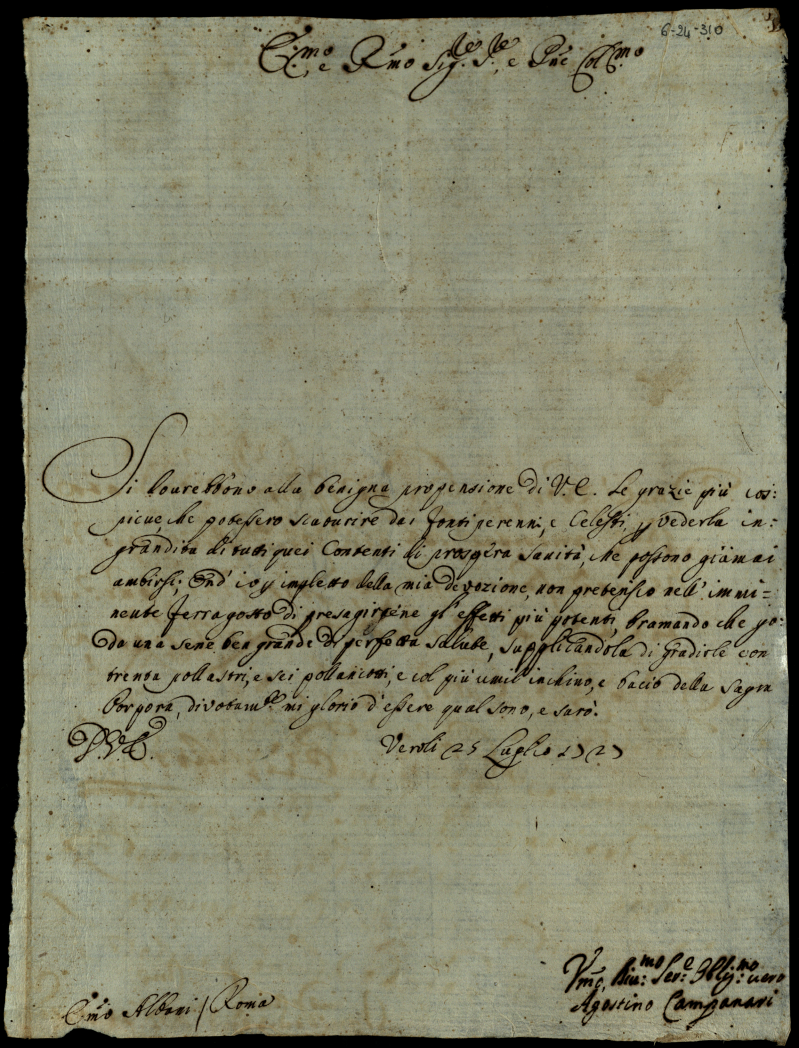 6-24-310
E:mo e R:mo Sig:re S:re, e P̃ne Col:mo
Si dourebbono alla benigna propensione di V.E. le grazie più cos:
picue, che potessero scaturire dai fonti perenni, e Celesti, p vederla in:
grandita di tutti quei Contenti di prospera Sanità, che possono giamai
ambirsi; Ond' io della mia devozione, non nell' immi=
nente ferragosto di gl' effetti più potenti, bramando che go:
da una serie ben grande di perfetta salute, supplicandola di gradirle con
trenta pollastri, e sei pollancotti, e col più umil' inchino, e bacio della Sagra
Porpora, divotam:te mi glorio d'essere qual sono, e sarò.
D.V.E. Veroli 25 Luglio 1727
Vmo, Diu:mo Ser:e Obli:mo vero
E:mo Albani / Roma Agostino Campanari